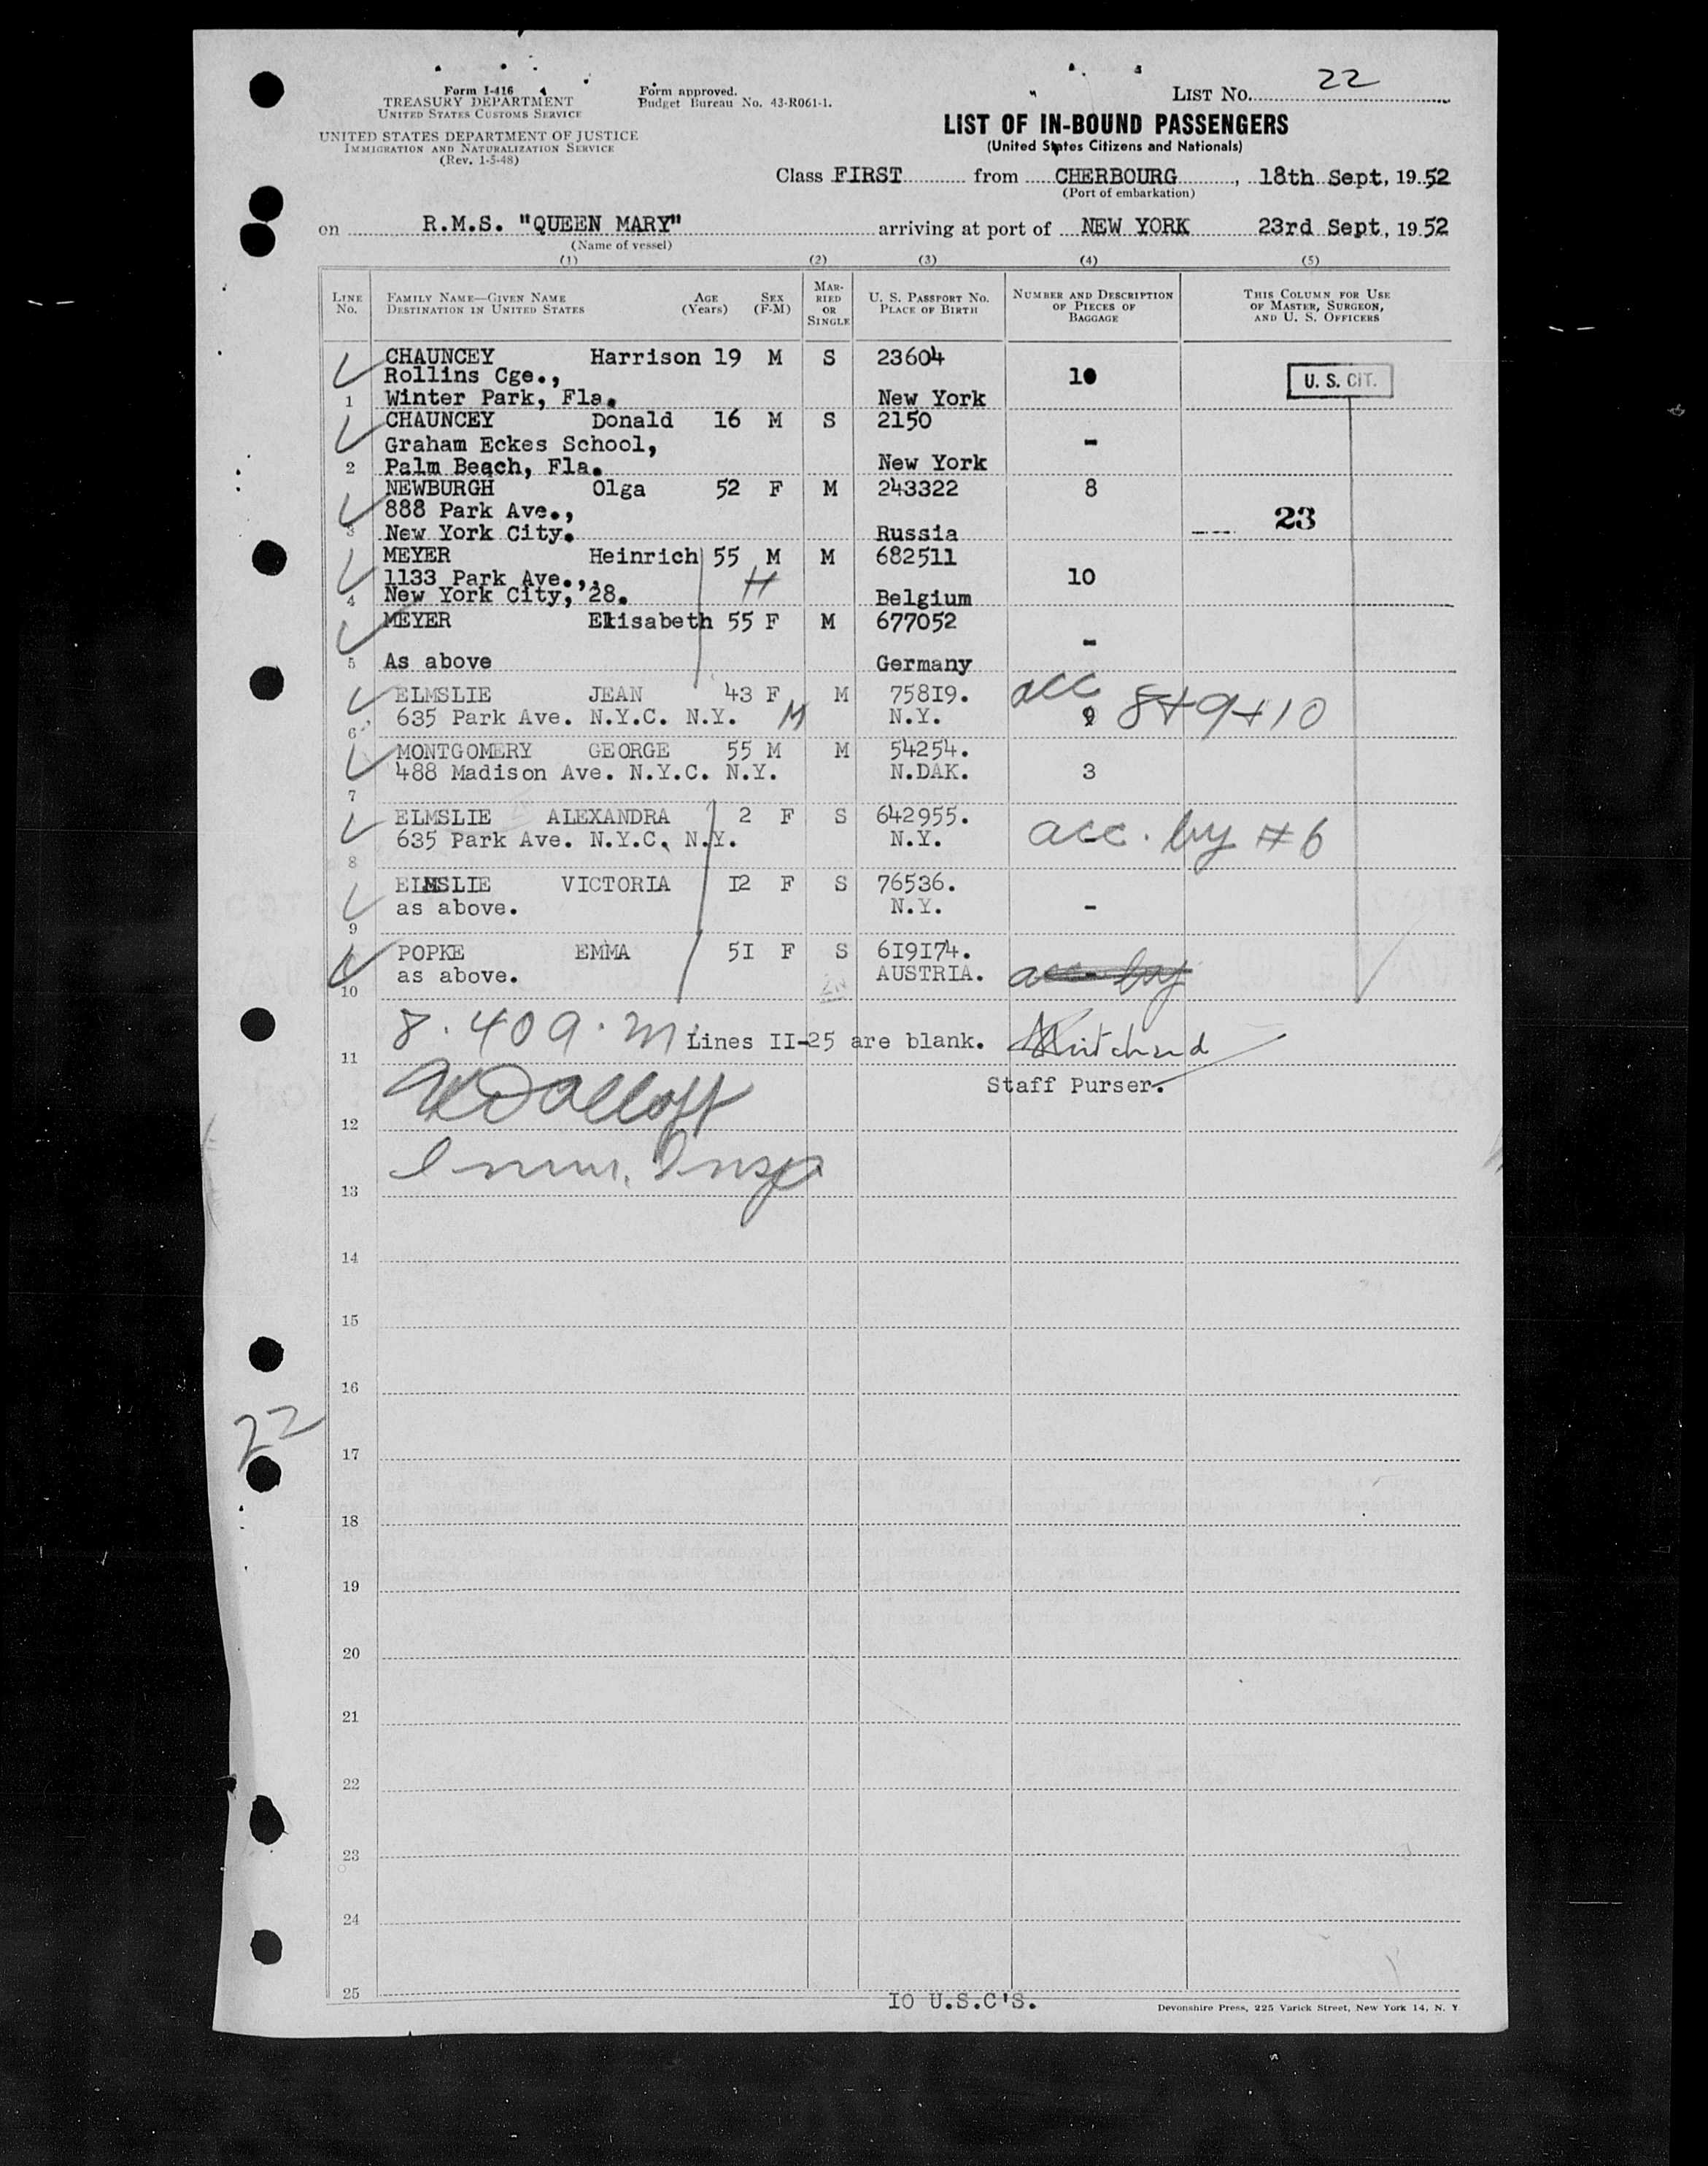 Form I-416
TREASURY DEPARTMENT
UNITED STATES CUSTOMS SERVICE
UNITED STATES DEPARTMENT OF JUSTICE
IMMIGRATION AND NATURALIZATION SERVICE
(Rev. 1-5-48)
Form approved.
Budget Bureau No. 43-R061-1.
LIST NO. 22
LIST OF IN-BOUND PASSENGERS
(United States Citizens and Nationals)
Class FIRST from CHERBOURG, 18th Sept, 1952
(Port of embarkation)
on R.M.S. "QUEEN MARY" arriving at port of NEW YORK 23rd Sept, 1952
(Name of vessel)
(1) (2) (3) (4) (5)
LINE NO. FAMILY NAME—GIVEN NAME DESTINATION IN UNITED STATES AGE (Years) SEX (F-M) MARRIED OR SINGLE U. S. PASSPORT NO. PLACE OF BIRTH NUMBER AND DESCRIPTION OF PIECES OF BAGGAGE THIS COLUMN FOR USE OF MASTER, SURGEON, AND U. S. OFFICERS
CHAUNCEY Harrison 19 M S 23604
Rollins Cge., 10 U. S. CIT.
1 Winter Park, Fla. New York
CHAUNCEY Donald 16 M S 2150
Graham Eckes School, -
2 Palm Beach, Fla. New York
NEWBURGH Olga 52 F M 243322 8
888 Park Ave., 23
3 New York City. Russia
MEYER Heinrich 55 M M 682511
1133 Park Ave.,, H 10
4 New York City,'28. Belgium
MEYER Elisabeth 55 F M 677052
-
5 As above Germany
ELMSLIE JEAN 43 F M 75819. acc 8+9+10
6 635 Park Ave. N.Y.C. N.Y. M N.Y. 9
MONTGOMERY GEORGE 55 M M 54254.
488 Madison Ave. N.Y.C. N.Y. N.DAK. 3
7
ELMSLIE ALEXANDRA 2 F S 642955.
635 Park Ave. N.Y.C. N.Y. N.Y. acc. by #6
8
ELMSLIE VICTORIA I2 F S 76536.
as above. N.Y. -
9
POPKE EMMA 5I F S 6I9I74.
as above. AUSTRIA. acc by
10
8.40 a.m. Lines II-25 are blank.
11
Staff Purser.
12
Imm. Insp
13
14
15
16
22
17
18
19
20
21
22
23
24
25
IO U.S.C'S.
Devonshire Press, 225 Varick Street, New York 14, N. Y